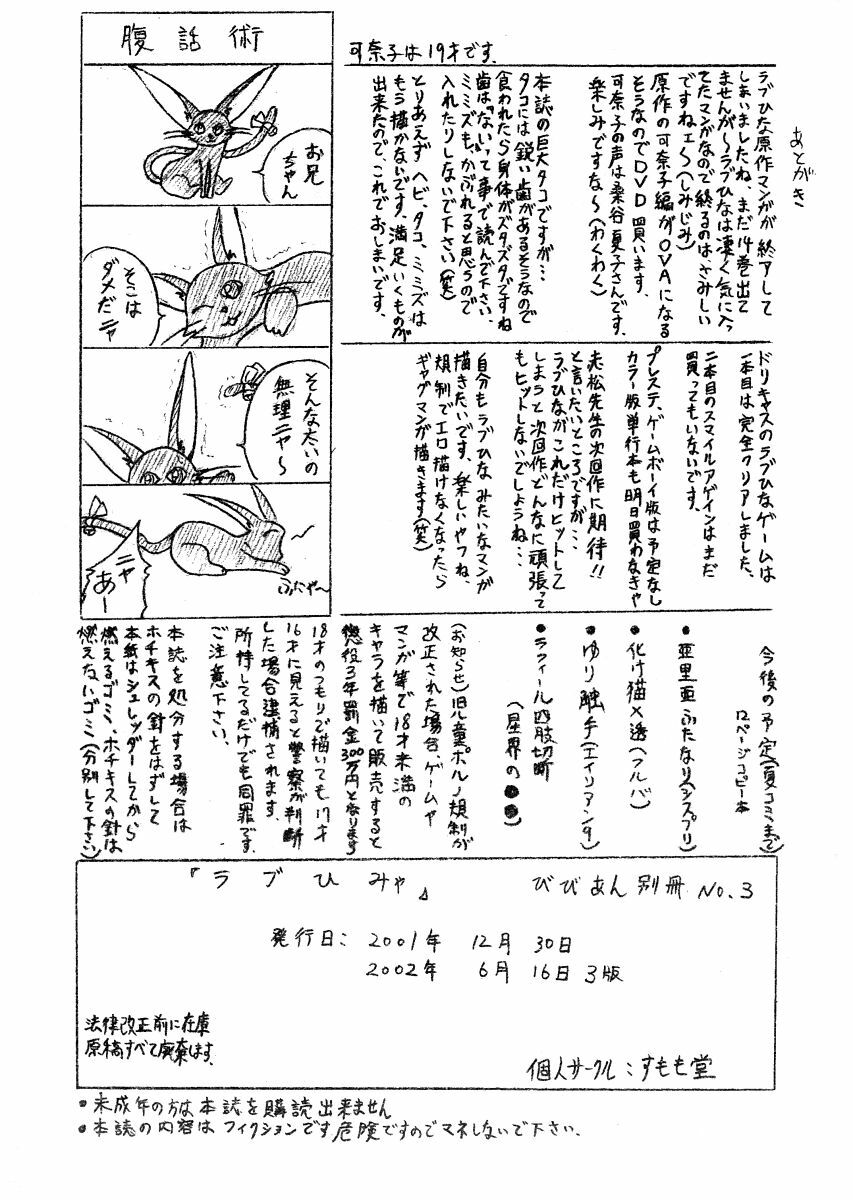 あとがき
ラブひな原作マンガが終アして
しまいましたね、まだ14巻出て
ませんが〜ラブひなは凄く気に入っ
てたマンガなので終るのは、さみしい
ですねェ〜(しみじみ)
原作の可奈子編がOVAになる
そうなのでDVD買います、
可奈子の声は桑谷夏子さんです、
楽しみですな〜(わくわく)
可奈子は19才です、
本誌の巨大タコですが…
タコには鋭い歯があるそうなので
食われたら身体がズタズタですね
歯は「ない」って事で読んで下さい、
ミミズも、かぶれると思うので
入れたりしないで下さい(笑)
とりあえずヘビ、タコ、ミミズは
もう描かないです、満足いくものが
出来たので、これでおしまいです、
腹話術
お兄
ちゃん
そこは
ダメだニャ
そんな太いの
無理ニャ〜
ニャ
あー
ふにゃ〜
ドリキャスのラブひなゲームは
一本目は完全クリアしました、
二本目のスマイルアゲインはまだ
買ってもいないです、
プレステ、ゲームボーイ版は予定なし
カラー版単行本も明日買わなきゃ
赤松先生の次回作に期待!!
と言いたいところですが…
ラブひながこれだけヒットして
しまうと次回作どんなに頑張って
もヒットしないでしょうね…
自分もラブひなみたいなマンガ
描きたいです、楽しいやつね、
規制でエロ描けなくなったら
ギャグマンガ描きます(笑)
今後の予定(夏コミまで)
12ページコピー本
●亜里亜ふたなり(シスプリ)
●化け猫×透(フルバ)
●ゆり触手(エイリアン9)
●ラフィール四肢切断
(星界の●●)
(お知らせ)旧児童ポルノ規制が
改正された場合、ゲームや
マンガ等で18才未満の
キャラを描いて販売すると
懲役3年罰金300万円となります
18才のつもりで描いても17才
16才に見えると警察が判断
した場合逮捕されます、
所持してるだけでも同罪です、
ご注意下さい、
本誌を処分する場合は
ホチキスの針をはずして
本紙はシュレッダーしてから
燃えるゴミ、ホチキスの針は
燃えないゴミ(分別して下さい)
『ラブひみゃ』 びびあん別冊 No.3
発行日: 2001年 12月 30日
2002年 6月 16日 3版
法律改正前に在庫
原稿すべて廃棄します、
個人サークル:すもも堂
●未成年の方は本誌を購読出来ません
●本誌の内容はフィクションです危険ですのでマネしないで下さい、